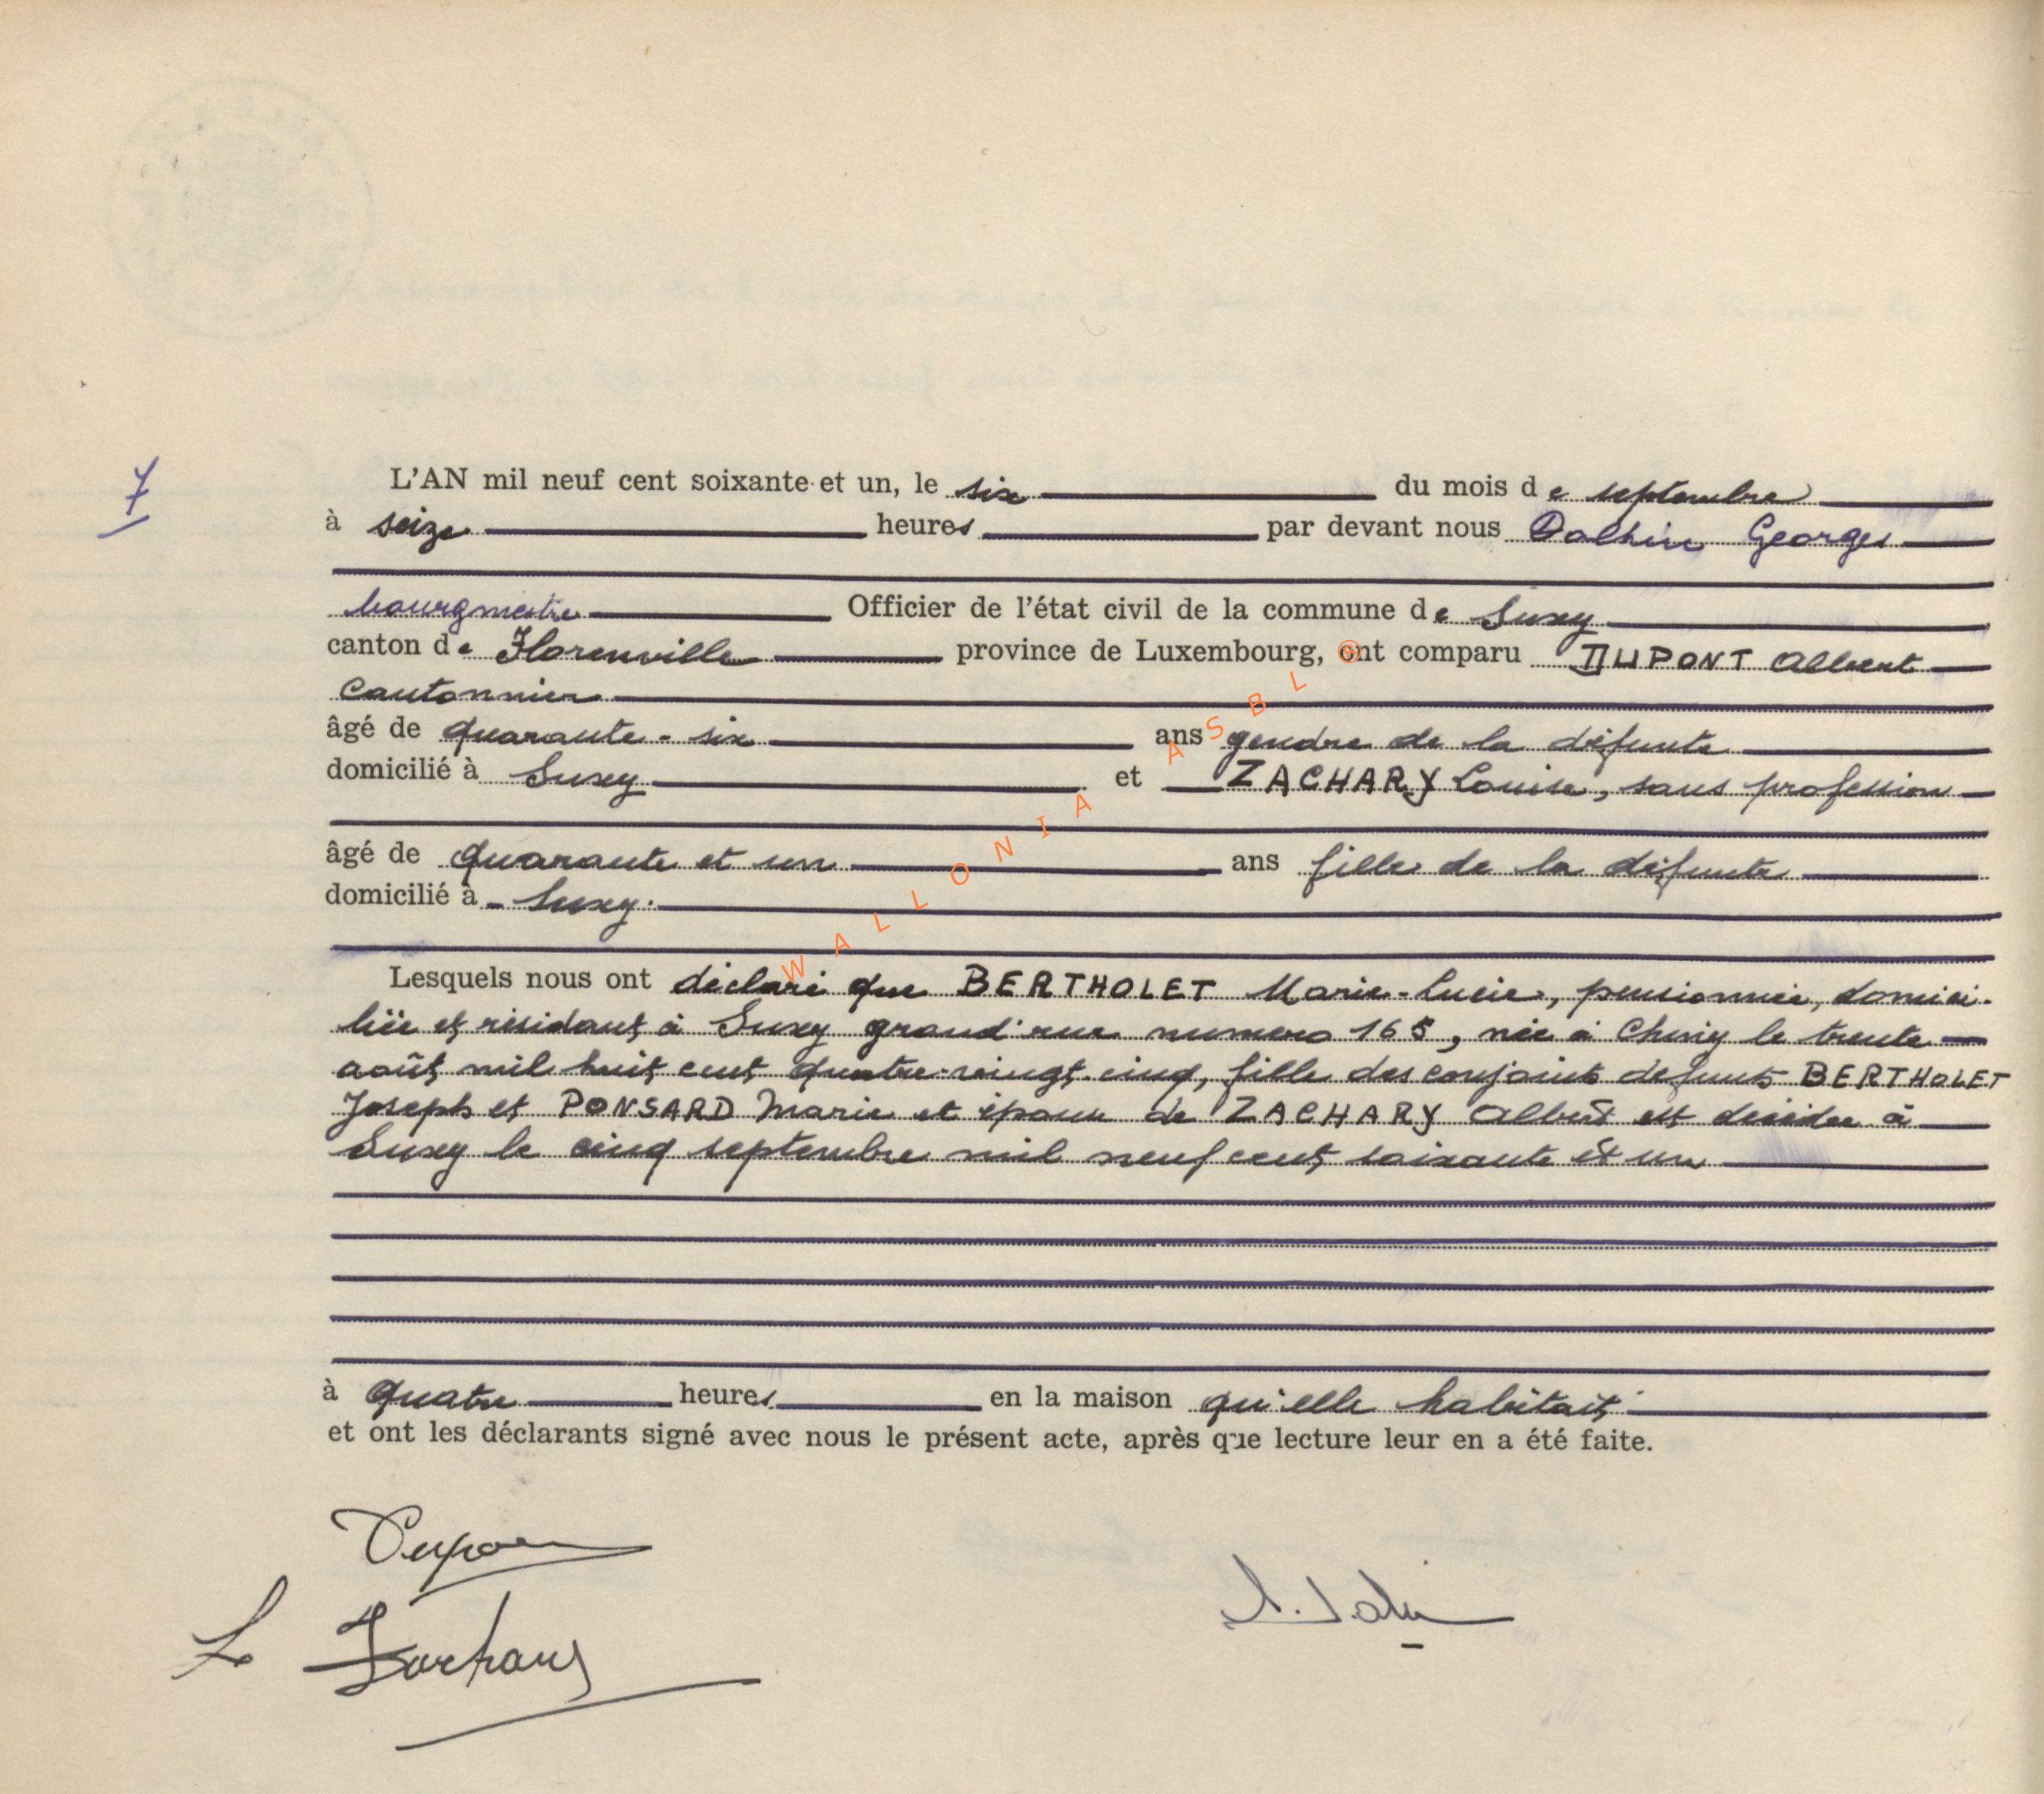 7
L'AN mil neuf cent soixante et un, le six du mois de septembre
à seize heures par devant nous Georges
bourgmestre Officier de l'état civil de la commune de Suxy
canton de Florenville province de Luxembourg, ont comparu DUPONT Albert
Cantonnier
âgé de quarante-six ans gendre de la défunte
domicilié à Suxy et ZACHARY Louise, sans profession
âgé de quarante et un ans fille de la défunte
domicilié à Suxy.
Lesquels nous ont déclaré que BERTHOLET Marie-Lucie, pensionnée, domici-
liée et résidant à Suxy grand'rue numero 165, née à Chiny le trente
août mil huit cent quatre-vingt-cinq, fille des conjoints défunts BERTHOLET
Joseph et PONSARD Marie et épouse de ZACHARY Albert est décédée à
Suxy le cinq septembre mil neuf cent soixante et un
à quatre heures en la maison qu'elle habitait
et ont les déclarants signé avec nous le présent acte, après que lecture leur en a été faite.
WALLONIA ASBL ®